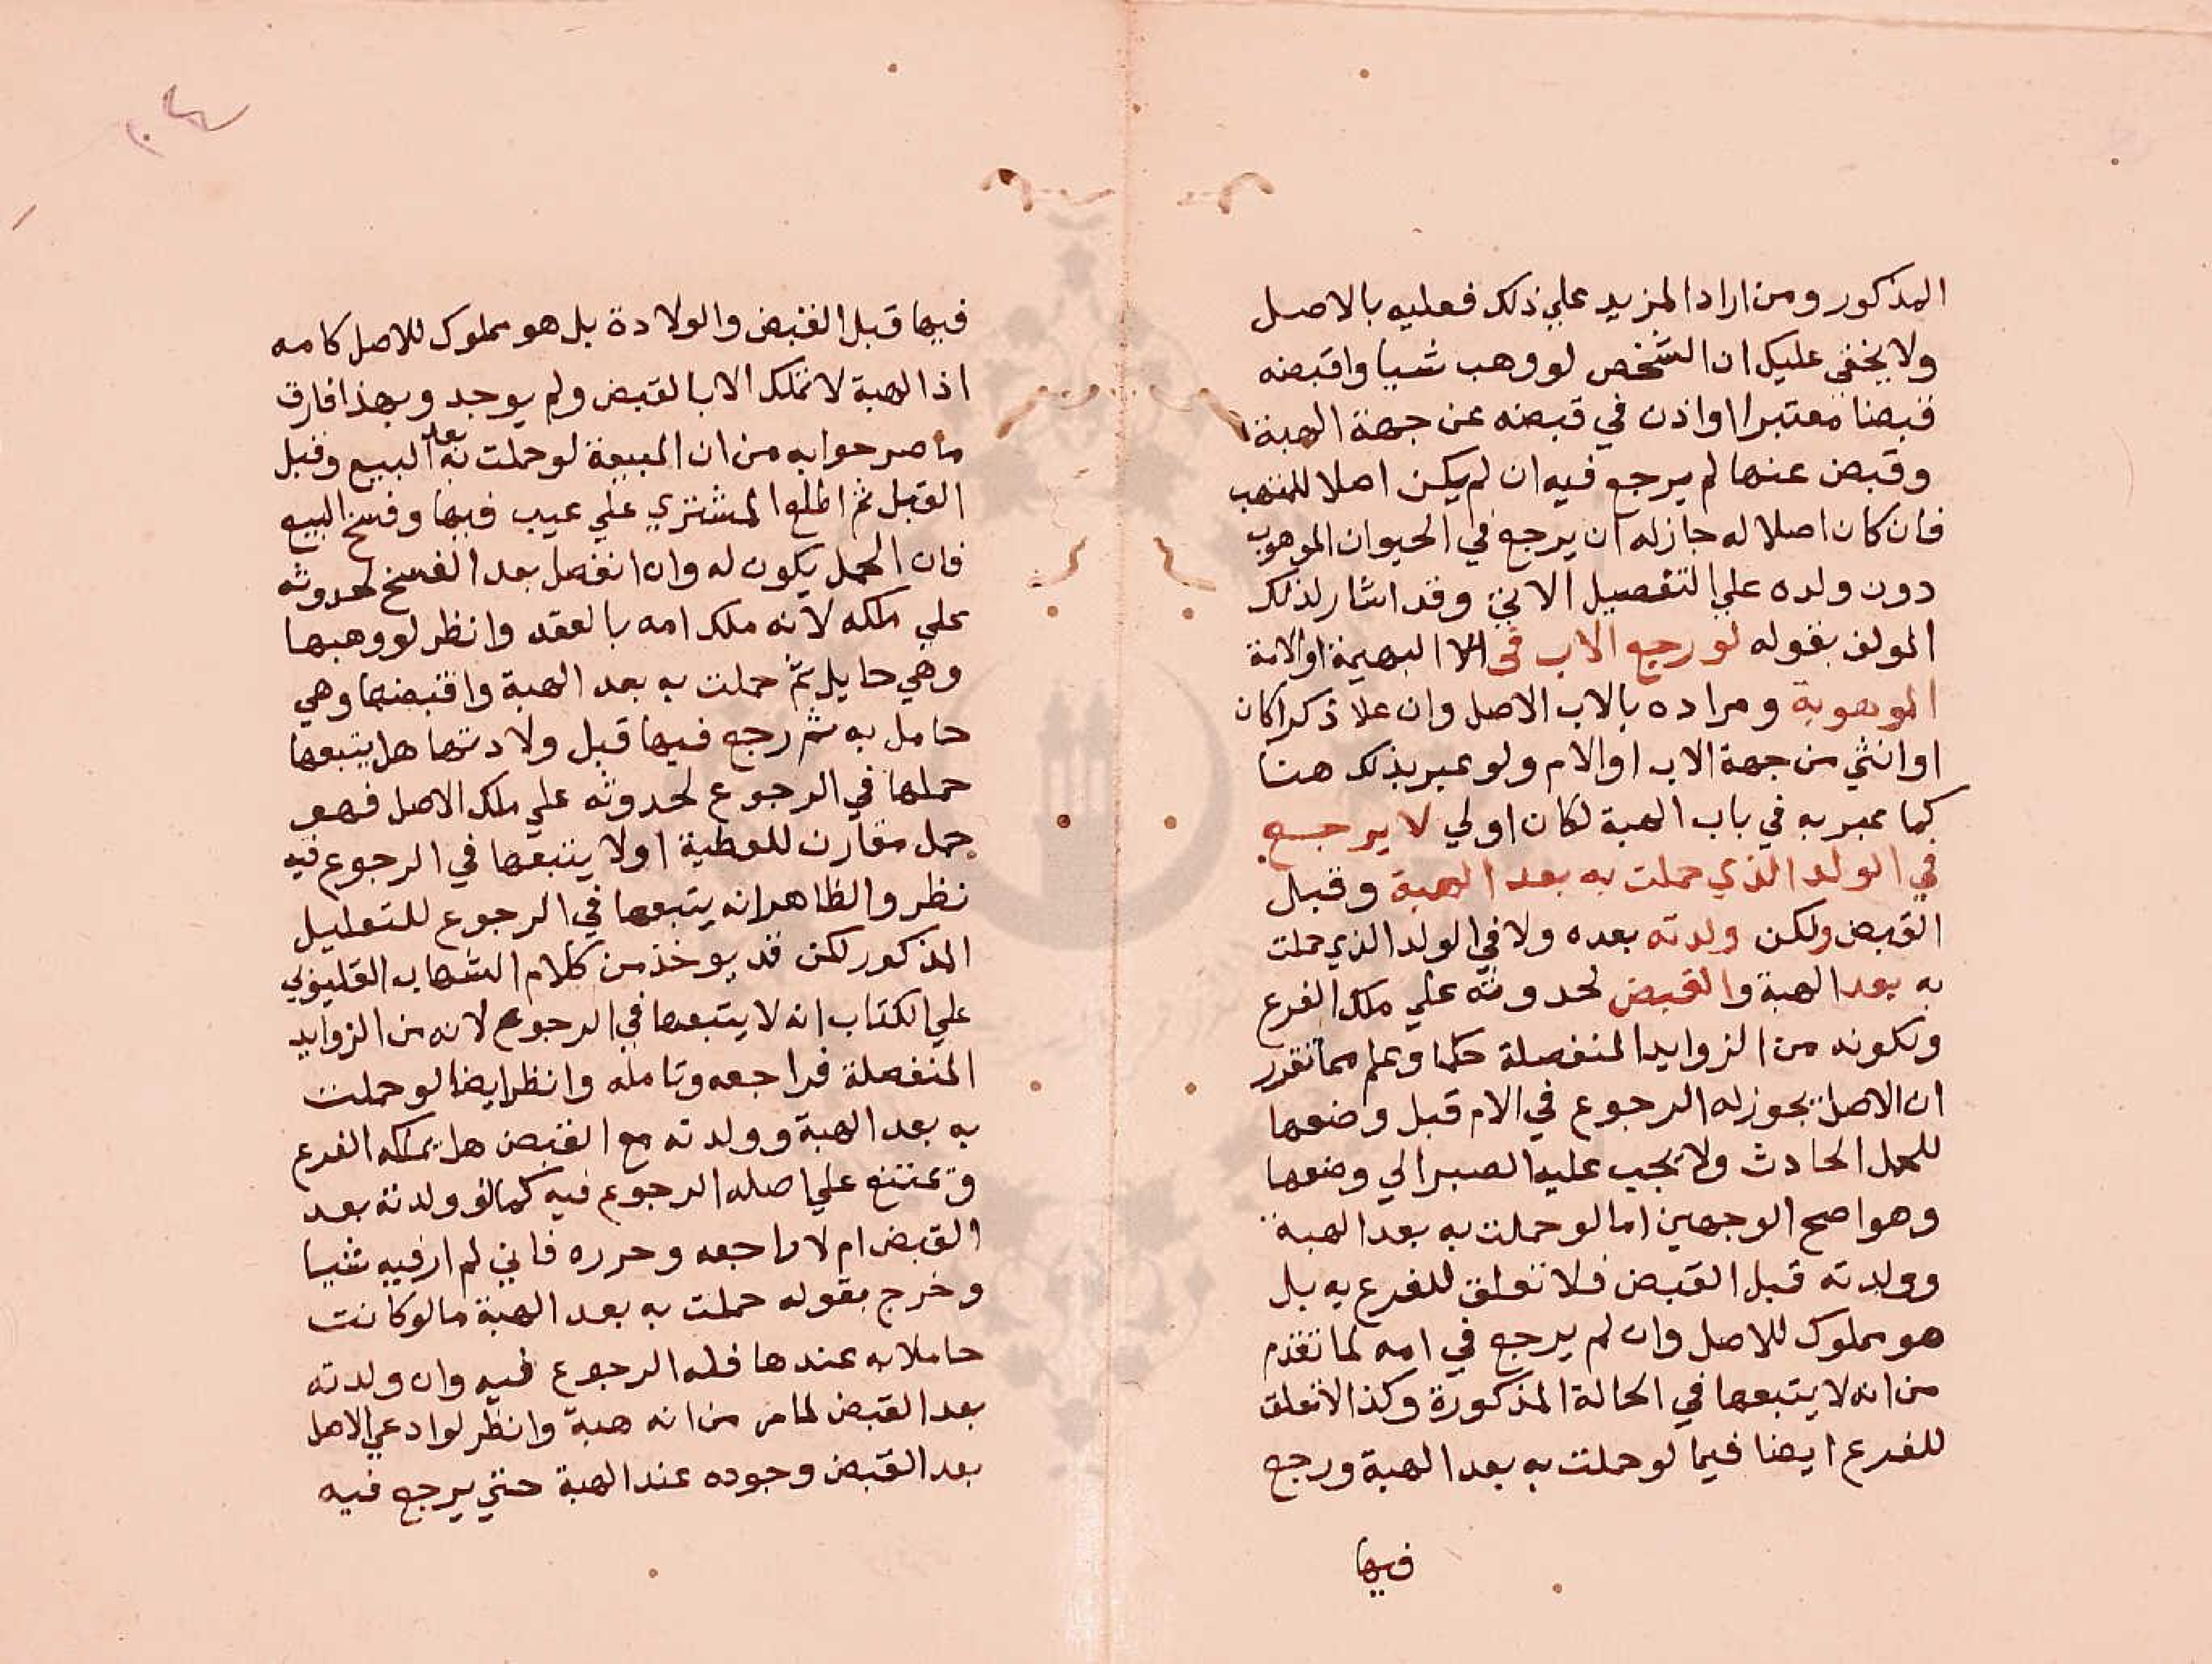 المذكور ومن اراد المزيد علي ذلك فعليه بالاصل
ولا يخفي عليك ان الشخص لو وهب شيا واقبضه
قبضا معتبرا او اذن في قبضه عن جهة الهبة
وقبض عنها لم يرجع فيه ان لم يكن اصلا للمتهب
فان كان اصلا له جاز له ان يرجع في الحيوان الموهوب
دون ولده علي التفصيل الاتي وقد اشار لذلك
المولف بقوله لو رجع الاب في الا البهيمة او الامة
الموهوبة ومراده بالاب الاصل وان علا ذكرا كان
او انثي من جهة الاب او الام ولو عبر بذلك هنا
كما عبر به في باب الهبة لكان اولي لا يرجع
في الولد الذي حملت به بعد الهبة وقبل
القبض ولكن ولدته بعده ولا في الولد الذي حملت
به بعد الهبة والقبض لحدوثه علي ملك الفرع
ولكونه من الزوايد المنفصلة حكما وعلم مما تقرر
ان الاصل يجوز له الرجوع في الام قبل وضعها
للحمل الحادث ولا يجب عليه الصبر الي وضعها
وهو اصح الوجهين اما لو حملت به بعد الهبة
وولدته قبل القبض فلا تعلق للفرع به بل
هو مملوك للاصل وان لم يرجع في امه لما تقدم
من انه لا يتبعها في الحالة المذكورة وكذا لا تعلق
للفرع ايضا فيما لو حملت به بعد الهبة ورجع
فيها
٢٠٤
فيها قبل القبض والولادة بل هو مملوك للاصل كامه
اذ الهبة لا تملك الا بالقبض ولم يوجد وبهذا فارق
ما صرحوا به من ان المبيعة لو حملت به بعد البيع وقبل
القبل ثم اطلع المشتري علي عيب فيها وفسخ البيع
فان الحمل يكون له وان انفصل بعد الفسخ لحدوثه
علي ملكه لانه ملك امه بالعقد وانظر لو وهبها
وهي حايل ثم حملت به بعد الهبة واقبضها وهي
حامل به ثم رجع فيها قبل ولادتها هل يتبعها
حملها في الرجوع لحدوثه علي ملك الاصل فهو
حمل مقارن للعطية او لا يتبعها في الرجوع فيه
نظر والظاهر انه يتبعها في الرجوع للتعليل
المذكور لكن قد يوخذ من كلام الشهاب القليوبي
علي الكتاب انه لا يتبعها في الرجوع لانه من الزوايد
المنفصلة فراجعه وتامله وانظر ايضا لو حملت
به بعد الهبة وولدته مع القبض هل يملكه الفرع
ويمتنع علي اصله الرجوع فيه كما لو ولدته بعد
القبض ام لا راجعه وحرره فاني لم ار فيه شيا
وخرج بقوله حملت به بعد الهبة ما لو كانت
حاملا به عندها فله الرجوع فيه وان ولدته
بعد القبض لما مر من انه هبة وانظر لو ادعي الاصل
بعد القبض وجوده عند الهبة حتي يرجع فيه